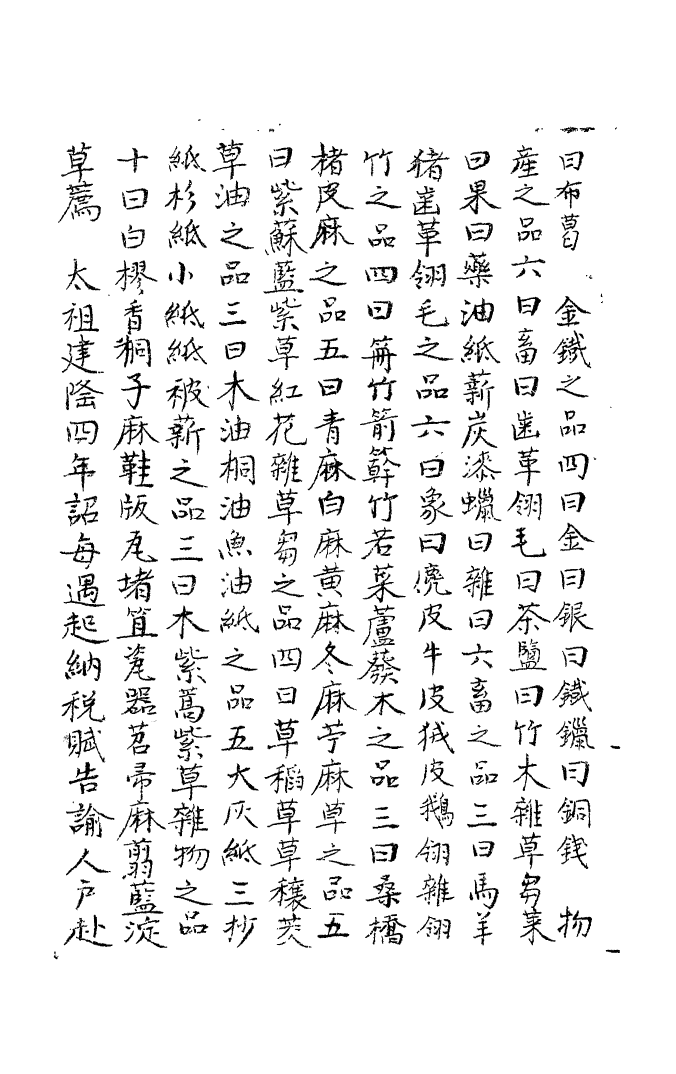 曰布葛　金鐵之品四曰金曰銀曰鐵鑞曰銅錢　物
產之品六曰畜曰齒革翎毛曰茶鹽曰竹木雜草芻菜
曰果曰藥油紙薪炭漆蠟曰雜曰六畜之品三曰馬羊
猪齒革翎毛之品六曰象曰麂皮牛皮狨皮鵝翎雜翎
竹之品四曰筋竹箭簳竹若菜蘆䕠木之品三曰桑橋
楮皮麻之品五曰青麻白麻黃麻冬麻苧麻草之品五
曰紫蘇藍紫草紅花雜草芻之品四曰草稻草草穰茭
草油之品三曰木油桐油魚油紙之品五大灰紙三抄
紙杉紙小紙紙被薪之品三曰木紫蒿紫草雜物之品
十曰白樛香桐子麻鞋版瓦堵笪瓷器苕帚麻翦藍淀
草薦　太祖建隆四年詔每遇起納税賦告諭人户赴